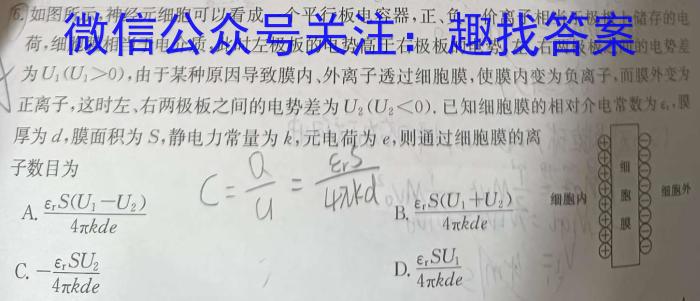 微信公众号关注:趣找答案
6.如图所示,神经元细胞可以看成一个平行板电容器,正、负一价离子相当于极板上储存的电
荷,细胞膜相当于电介质,此时左极板的电势高于右极板的电势,左、右两极板之间的电势差
为U₁(U₁>0),由于某种原因导致膜内、外离子透过细胞膜,使膜内变为负离子,而膜外变为
正离子,这时左、右两极板之间的电势差为U₂(U₂<0).已知细胞膜的相对介电常数为εᵣ,膜
厚为d,膜面积为S,静电力常量为k,元电荷为e,则通过细胞膜的离
子数目为
C=Q/U=εᵣS/4πkd
A. εᵣS(U₁-U₂)/4πkde
B. εᵣS(U₁+U₂)/4πkde
C. -εᵣSU₂/4πkde
D. εᵣSU₁/4πkde
细胞内
细胞膜
细胞外